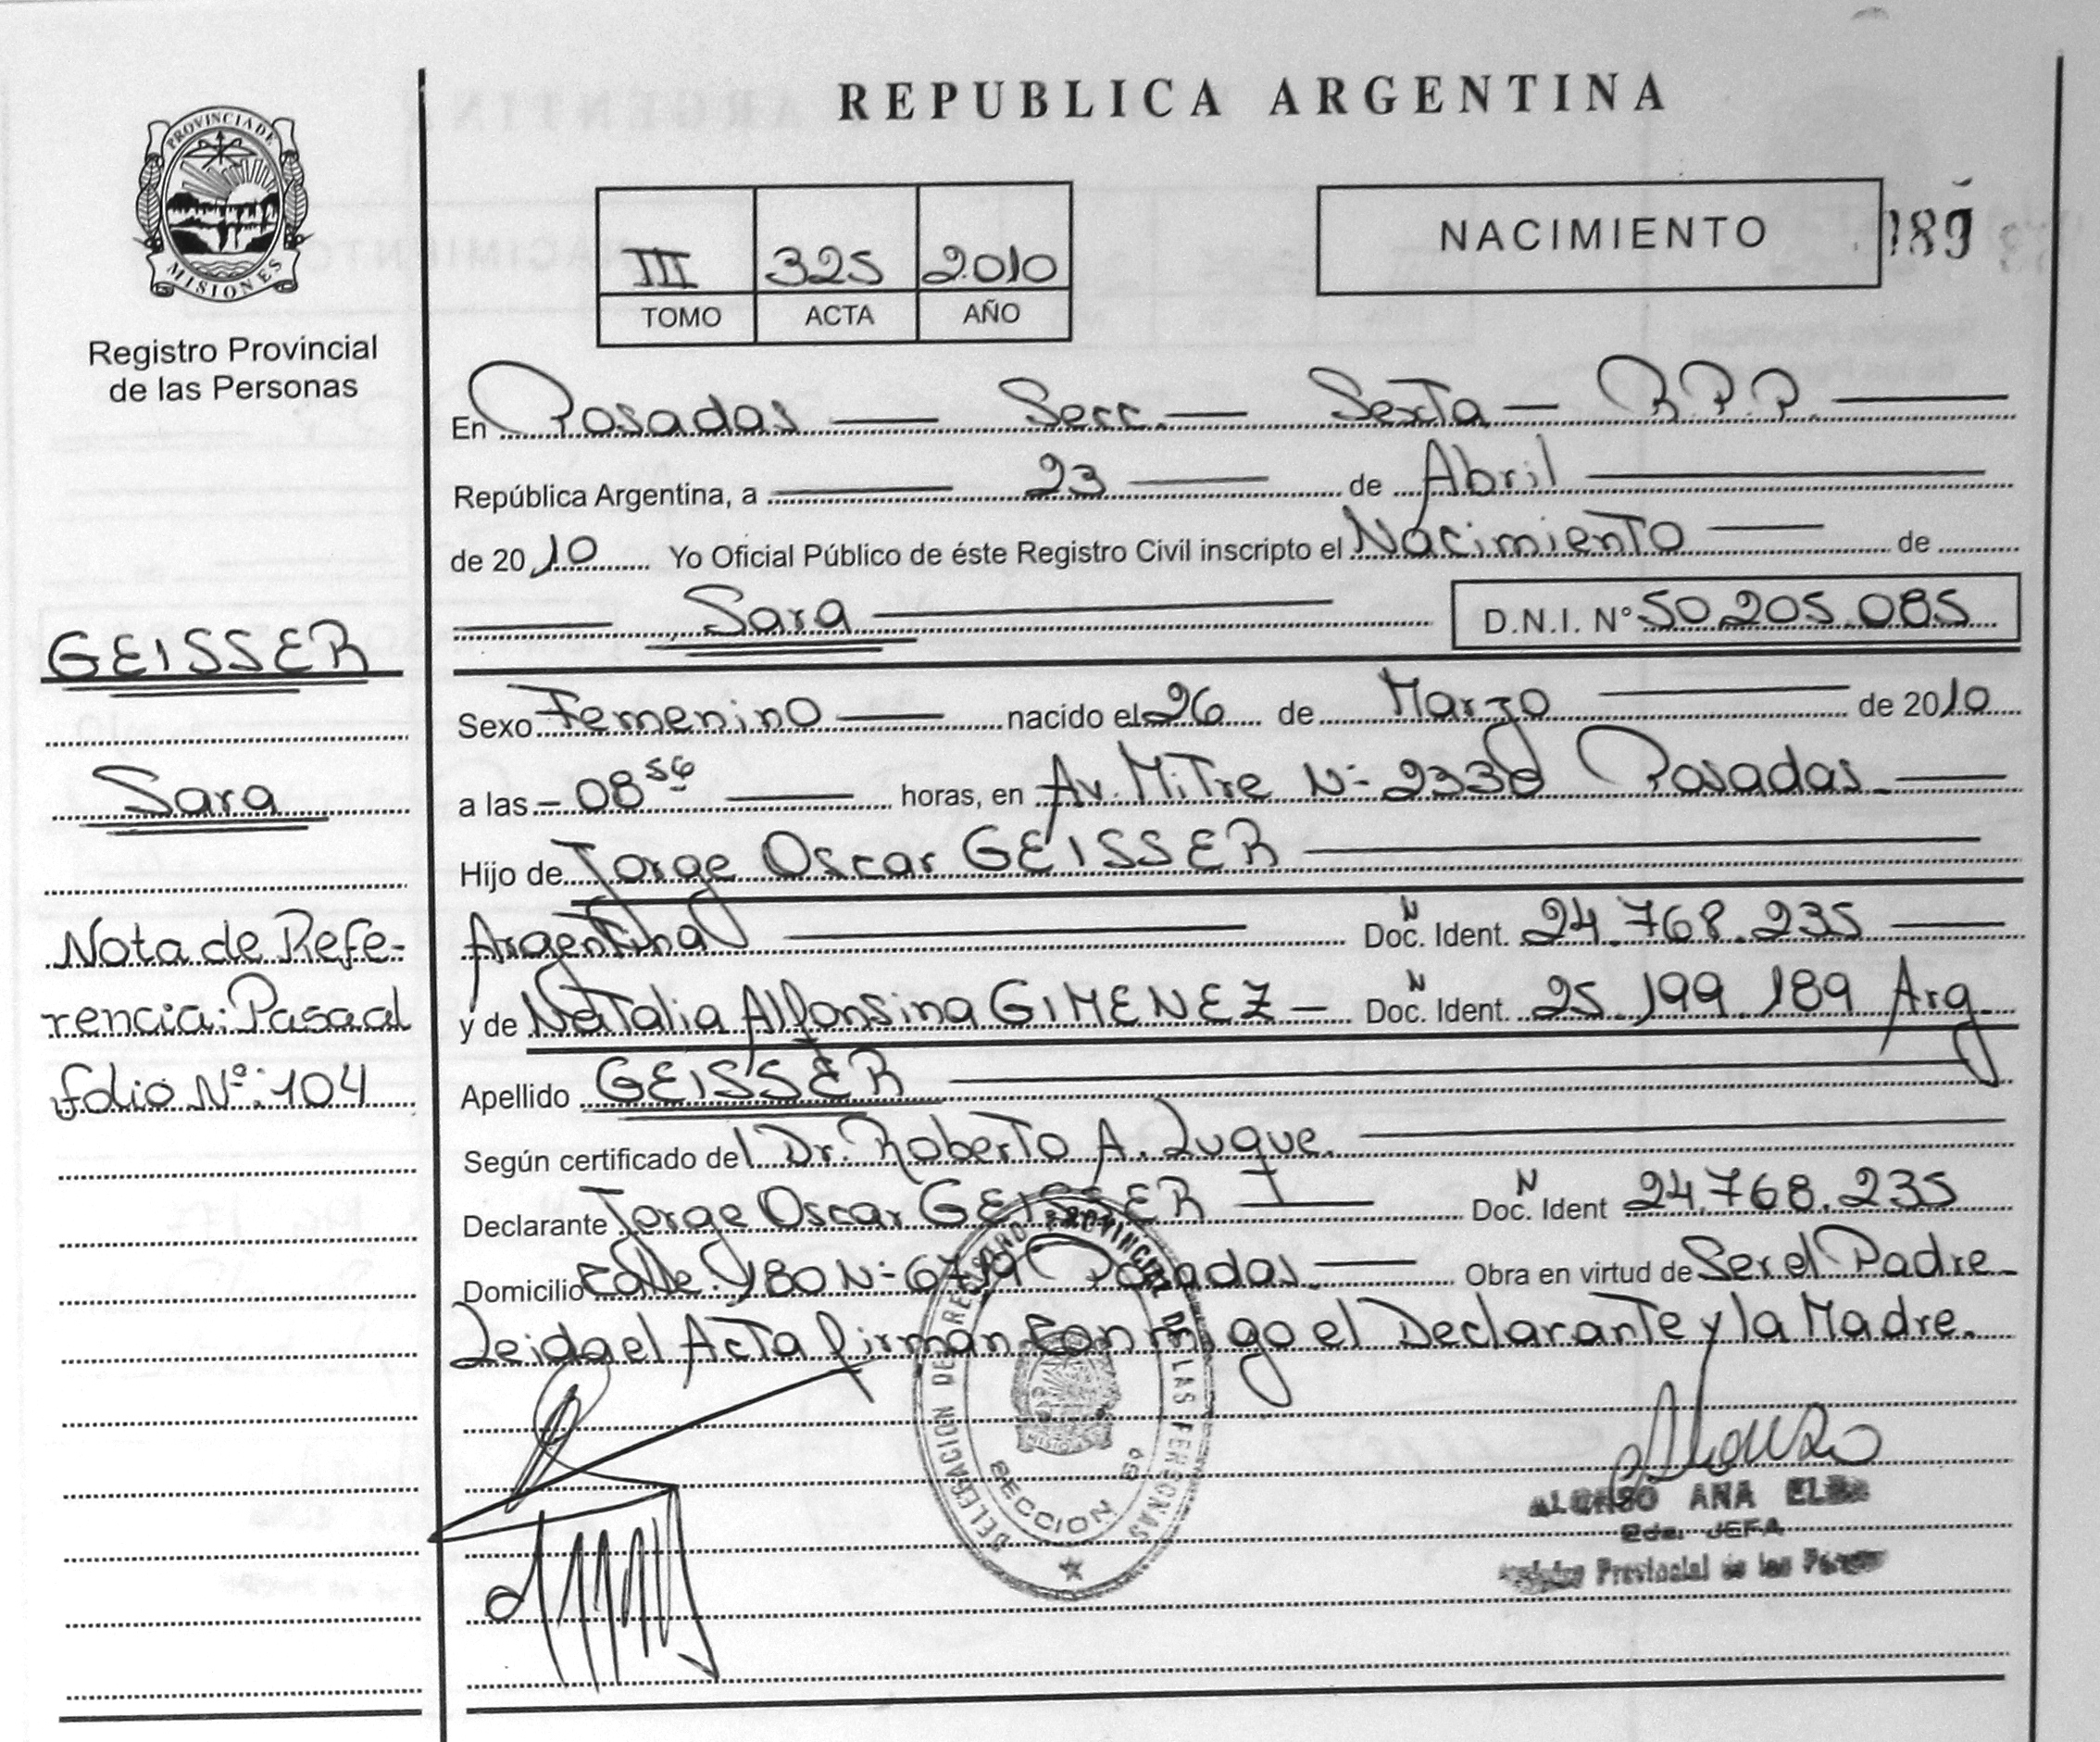 REPUBLICA ARGENTINA
PROVINCIA DE MISIONES
Registro Provincial
de las Personas
III 325 2010
TOMO ACTA AÑO
NACIMIENTO
189
En Posadas Secc. Sexta R.P.P.
República Argentina, a 23 de Abril
de 2010 Yo Oficial Público de éste Registro Civil inscripto el Nacimiento de
Sara D.N.I. N° 50.205.085
GEISSER
Sara
Nota de Refe-
rencia: Pasa al
folio N°: 104
Sexo Femenino nacido el 26 de Marzo de 2010
a las 08 56 horas, en Av. Mitre N° 2338 Posadas.
Hijo de Jorge Oscar GEISSER
Argentina Doc. N Ident. 24.768.235
y de Natalia Alfonsina GIMENEZ Doc. N Ident. 25.199.189 Arg.
Apellido GEISSER
Según certificado del Dr. Roberto A. Luque.
Declarante Jorge Oscar GEISSER Doc. N Ident 24.768.235
Domicilio Calle: 180 N° 6719 Posadas. Obra en virtud de Ser el Padre
Leida el Acta firman conmigo el Declarante y la Madre.
DELEGACION DEL REGISTRO PROVINCIAL DE LAS PERSONAS
SECCION 6°
Alonso
ALONSO ANA ELBA
2da. JEFA
Registro Provincial de las Personas